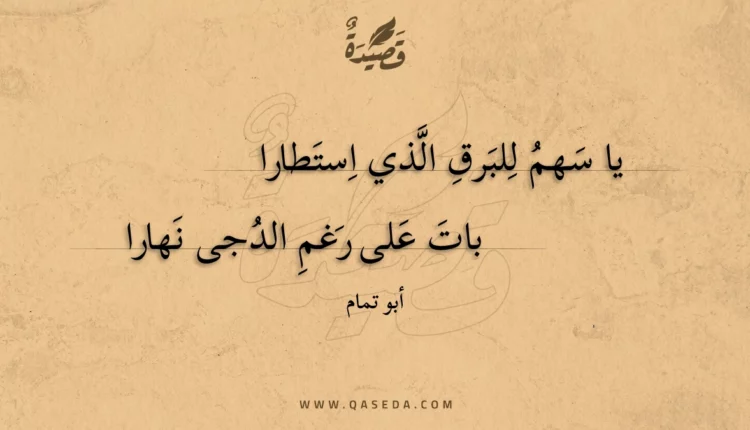 قَصِيدَةٌ
يا سَهمُ لِلبَرقِ الَّذي اِستَطارا
باتَ عَلى رَغمِ الدُجى نَهارا
أبو تمام
WWW.QASEDA.COM